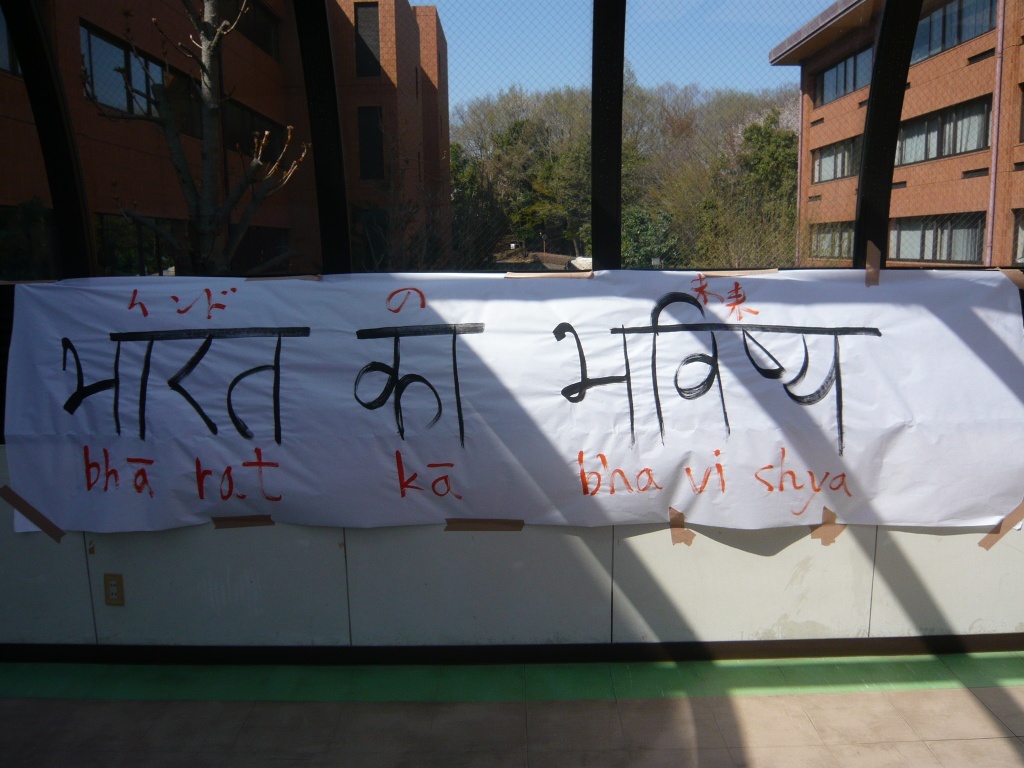 インド の 未来
भारत का भविष्य
bhā rat kā bha vi shya